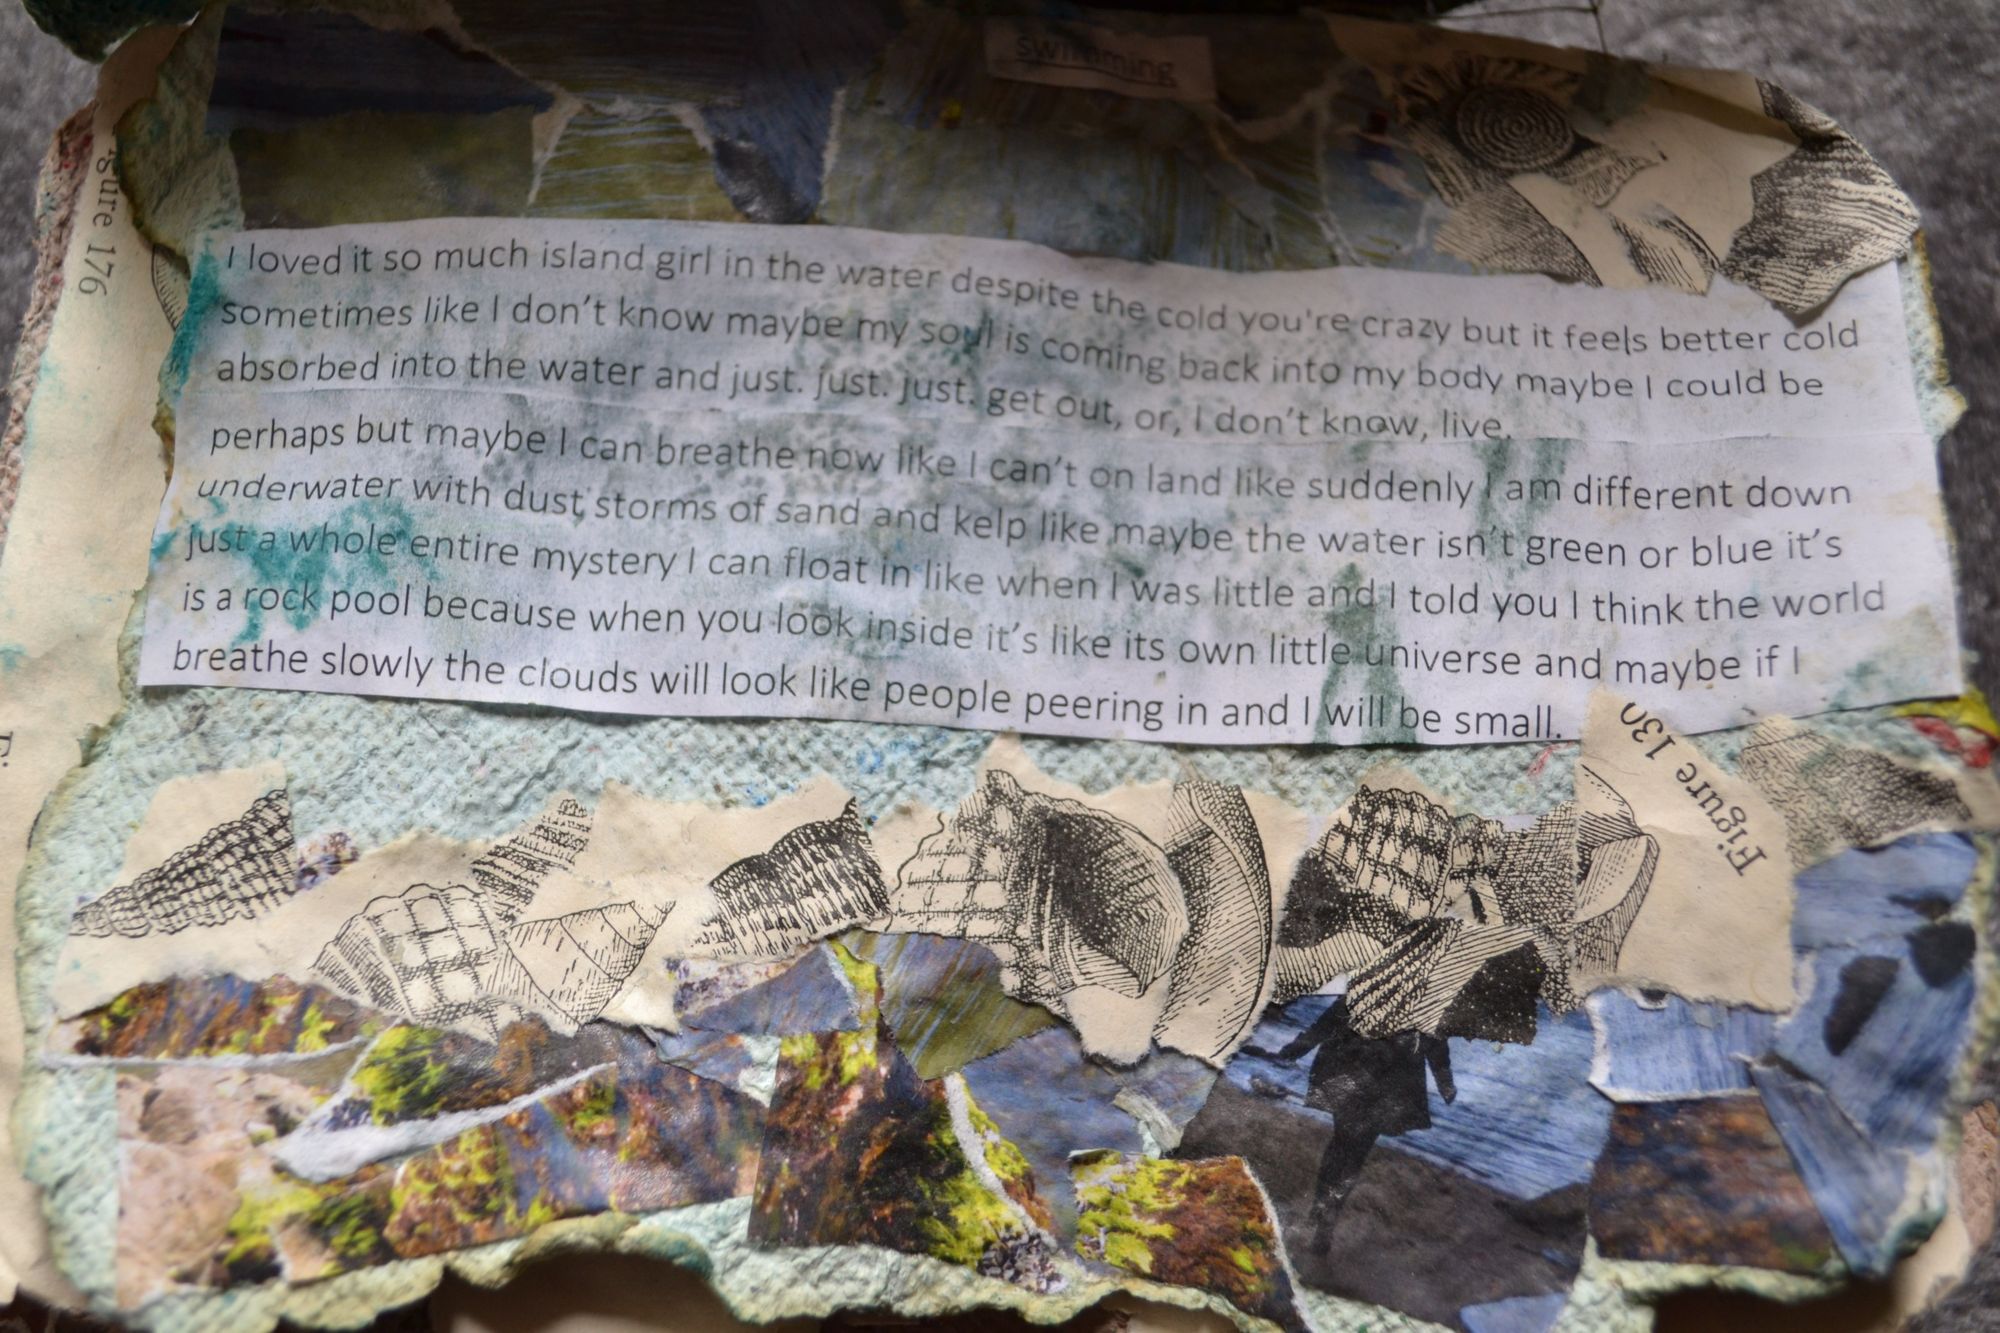 swimming
gure 176
I loved it so much island girl in the water despite the cold you're crazy but it feels better cold
sometimes like I don't know maybe my soul is coming back into my body maybe I could be
absorbed into the water and just. just. just. get out, or, I don't know, live.
perhaps but maybe I can breathe now like I can't on land like suddenly I am different down
underwater with dust storms of sand and kelp like maybe the water isn't green or blue it's
just a whole entire mystery I can float in like when I was little and I told you I think the world
is a rock pool because when you look inside it's like its own little universe and maybe if I
breathe slowly the clouds will look like people peering in and I will be small.
Figure 130